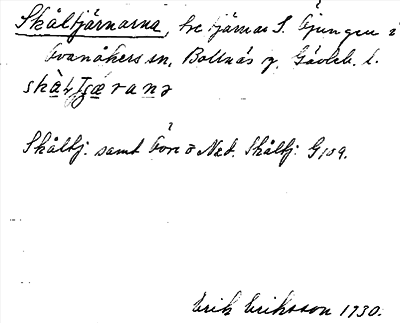 Skåltjärnarna, tre tjärnar S. Öjungen i
Ovanåkers sn, Bollnäs g. Gävleb. l.
Skåltj. samt Övr o Ned. Skåltj. G109.
Erik Eriksson 1930.